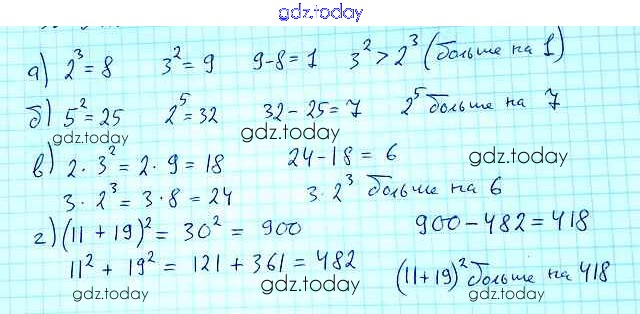 gdz.today
а) 2³ = 8 3² = 9 9-8=1 3² > 2³ (больше на 1)
б) 5² = 25 2⁵ = 32 32-25=7 2⁵ больше на 7
gdz.today gdz.today
в) 2 · 3² = 2 · 9 = 18 24-18 = 6 gdz.today
3 · 2³ = 3 · 8 = 24 3 · 2³ больше на 6
г) (11 + 19)² = 30² = 900 900-482=418
11² + 19² = 121 + 361 = 482 (11+19)² больше на 418
gdz.today gdz.today gdz.today